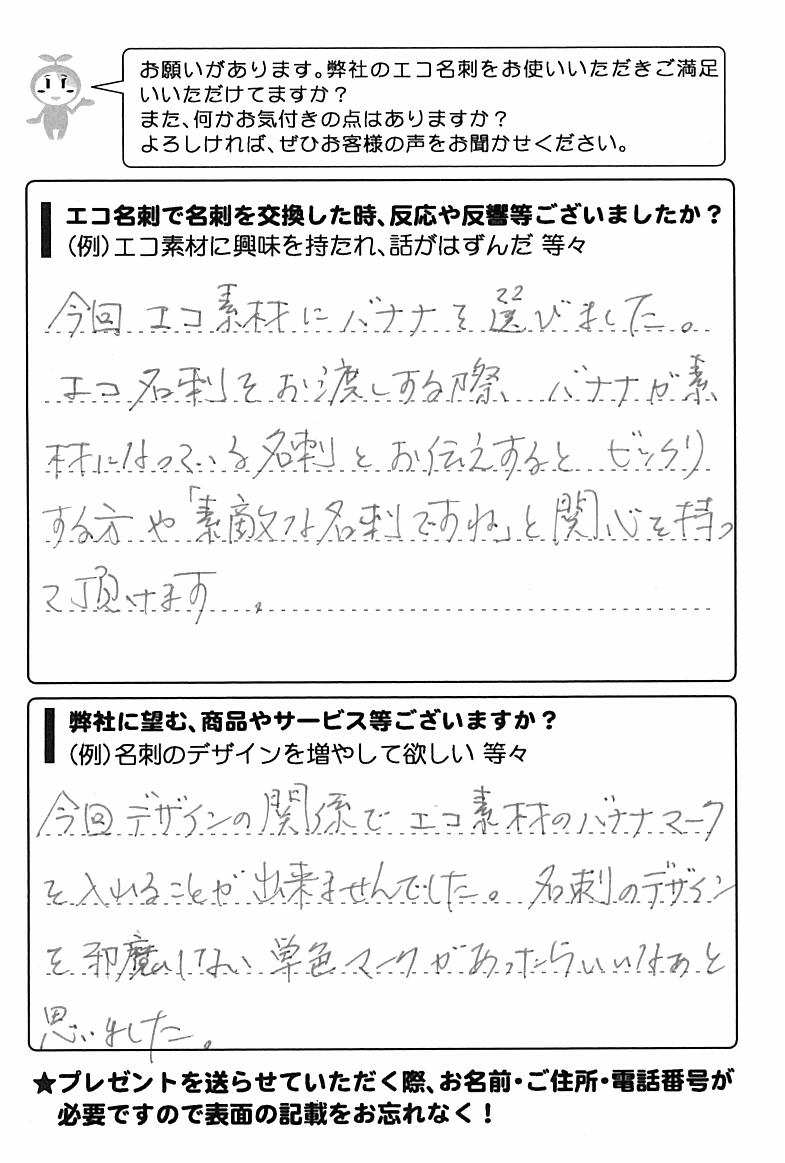 お願いがあります。弊社のエコ名刺をお使いいただきご満足
いいただけてますか？
また、何かお気付きの点はありますか？
よろしければ、ぜひお客様の声をお聞かせください。
エコ名刺で名刺を交換した時、反応や反響等ございましたか？
（例）エコ素材に興味を持たれ、話がはずんだ 等々
今回 エコ素材にバナナを選びました。
エコ名刺をお渡しする際、バナナが素
材になっている名刺とお伝えすると ビックリ
する方や「素敵な名刺ですね」と関心を持っ
て頂けます。
弊社に望む、商品やサービス等ございますか？
（例）名刺のデザインを増やして欲しい 等々
今回デザインの関係で エコ素材のバナナマーク
を入れることが出来ませんでした。名刺のデザイン
を邪魔しない単色マークがあったらいいなぁと
思いました。
★プレゼントを送らせていただく際、お名前・ご住所・電話番号が
必要ですので表面の記載をお忘れなく！